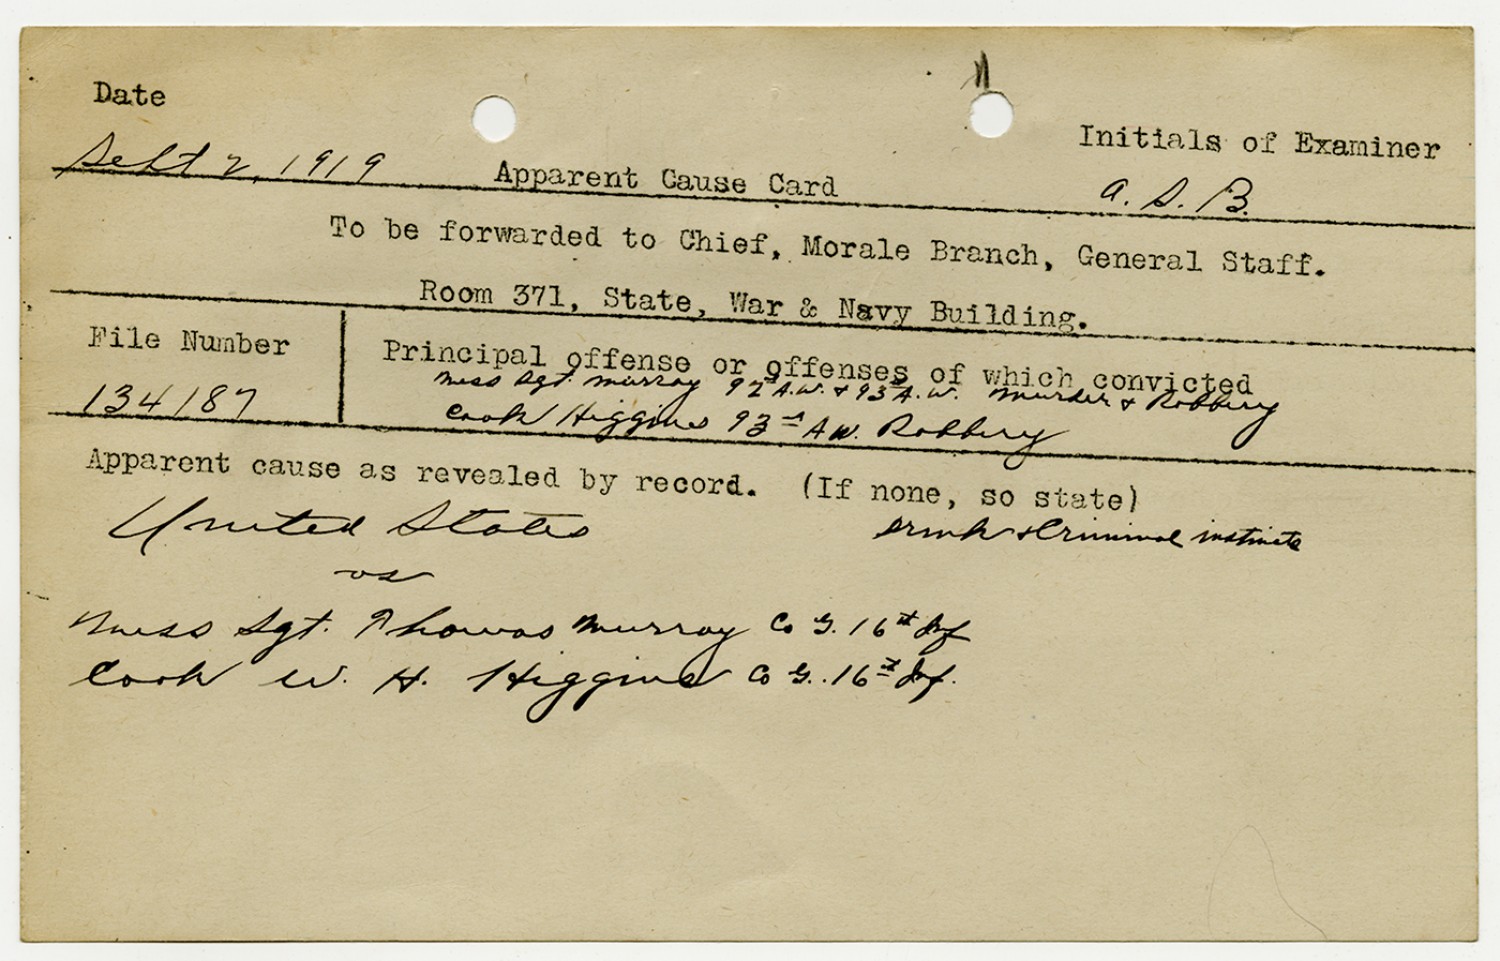 Date
Initials of Examiner
Sept 2, 1919
Apparent Cause Card
A. S. B.
To be forwarded to Chief, Morale Branch, General Staff.
Room 371, State, War & Navy Building.
File Number
134187
Principal offense or offenses of which convicted
Mess Sgt. Murray 92nd A.W. & 93rd A.W. Murder & Robbery
Cook Higgins 93rd A.W. Robbery
Apparent cause as revealed by record. (If none, so state)
Drink & Criminal instincts
United States
vs
Mess Sgt. Thomas Murray Co G. 16th Inf
Cook W. H. Higgins Co G. 16th Inf.